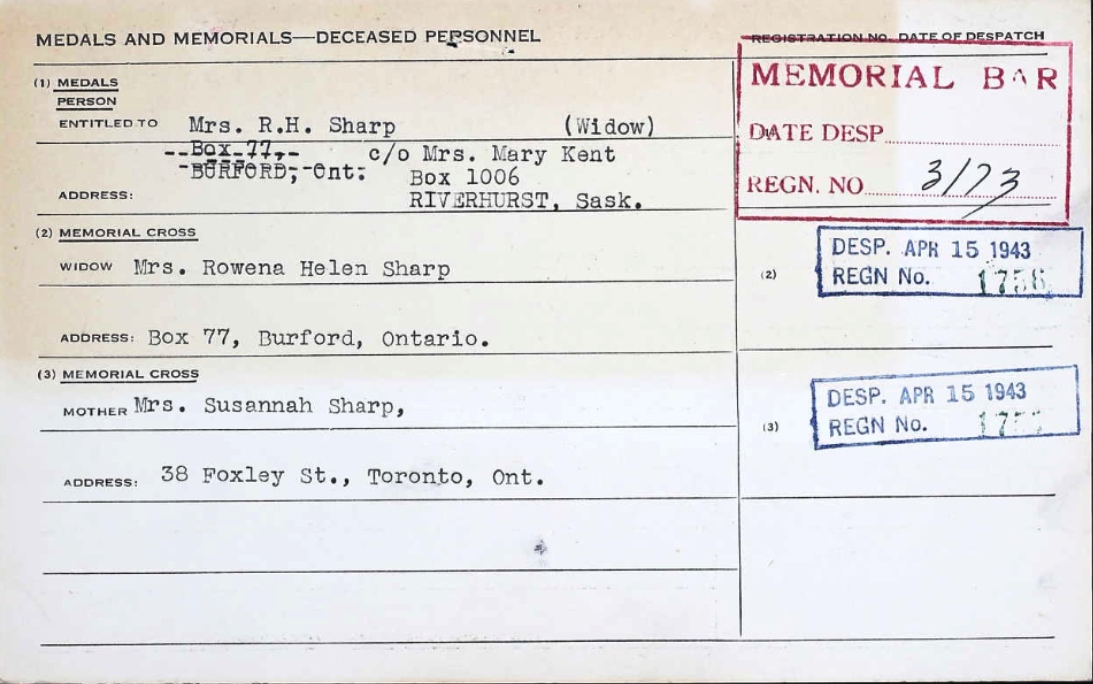 MEDALS AND MEMORIALS—DECEASED PERSONNEL
REGISTRATION NO. DATE OF DESPATCH
(1) MEDALS
PERSON
ENTITLED TO Mrs. R.H. Sharp (Widow)
--Box 77,- c/o Mrs. Mary Kent
-BURFORD,-Ont. Box 1006
ADDRESS: RIVERHURST, Sask.
MEMORIAL BAR
DATE DESP
REGN. NO 3173
(2) MEMORIAL CROSS
WIDOW Mrs. Rowena Helen Sharp
ADDRESS: Box 77, Burford, Ontario.
(2)
DESP. APR 15 1943
REGN No.
(3) MEMORIAL CROSS
MOTHER Mrs. Susannah Sharp,
ADDRESS: 38 Foxley St., Toronto, Ont.
(3)
DESP. APR 15 1943
REGN No.